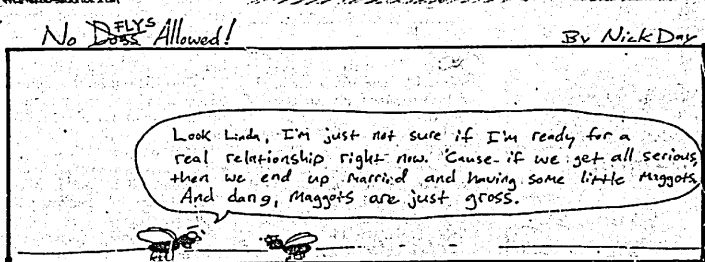 No Dogs FLYS Allowed!
By Nick Day
Look Linda, I'm just not sure if I'm ready for a
real relationship right now. 'Cause if we get all serious,
then we end up married and having some little maggots.
And dang, maggots are just gross.